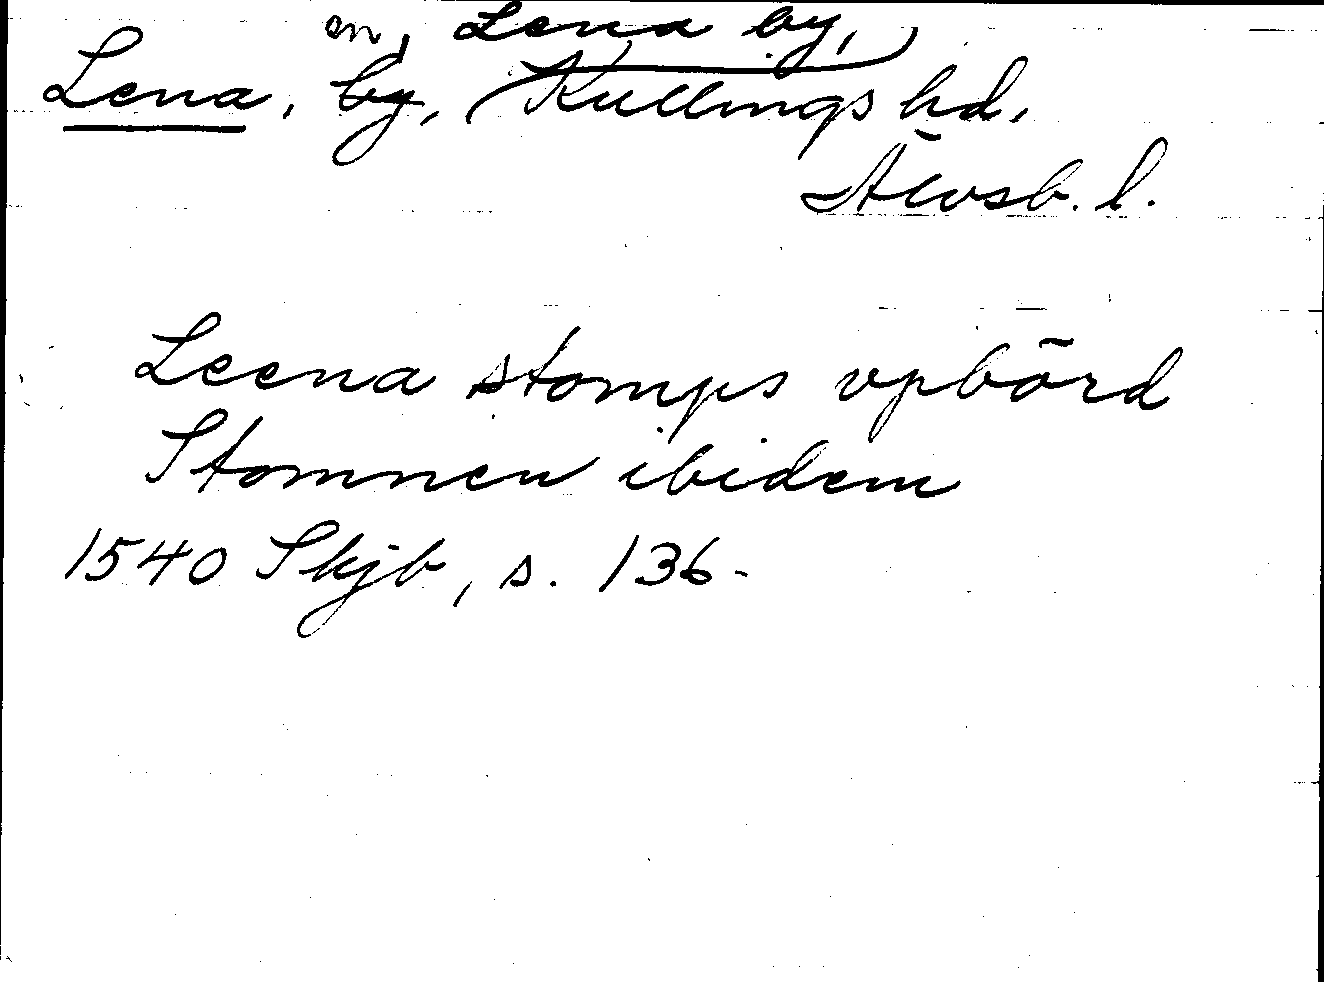 en, Lena by,
Lena, by, Kullings hd,
Älvsb. l.
Leena stomps vpbörd
Stomnen ibidem
1540 Skjb, s. 136.